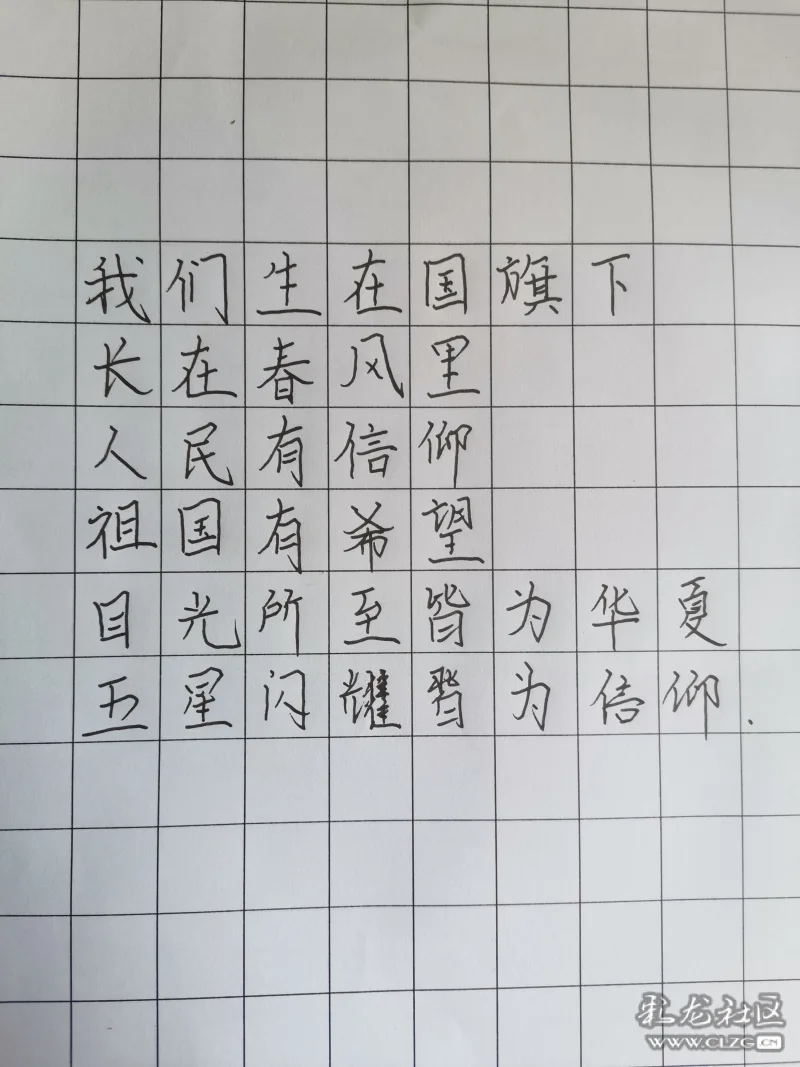 我们生在国旗下
长在春风里
人民有信仰
祖国有希望
目光所至皆为华夏
五星闪耀皆为信仰.
乳龙社区
WWW.CLZG.CN